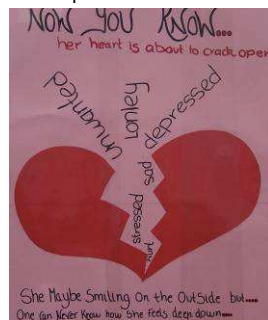 NOW YOU KNOW...
her heart is about to crack open
unwanted
Lonley
depressed
sad
stressed
hurt
She Maybe Smiling On the Outside but....
One can Never Know how She feels deep down....